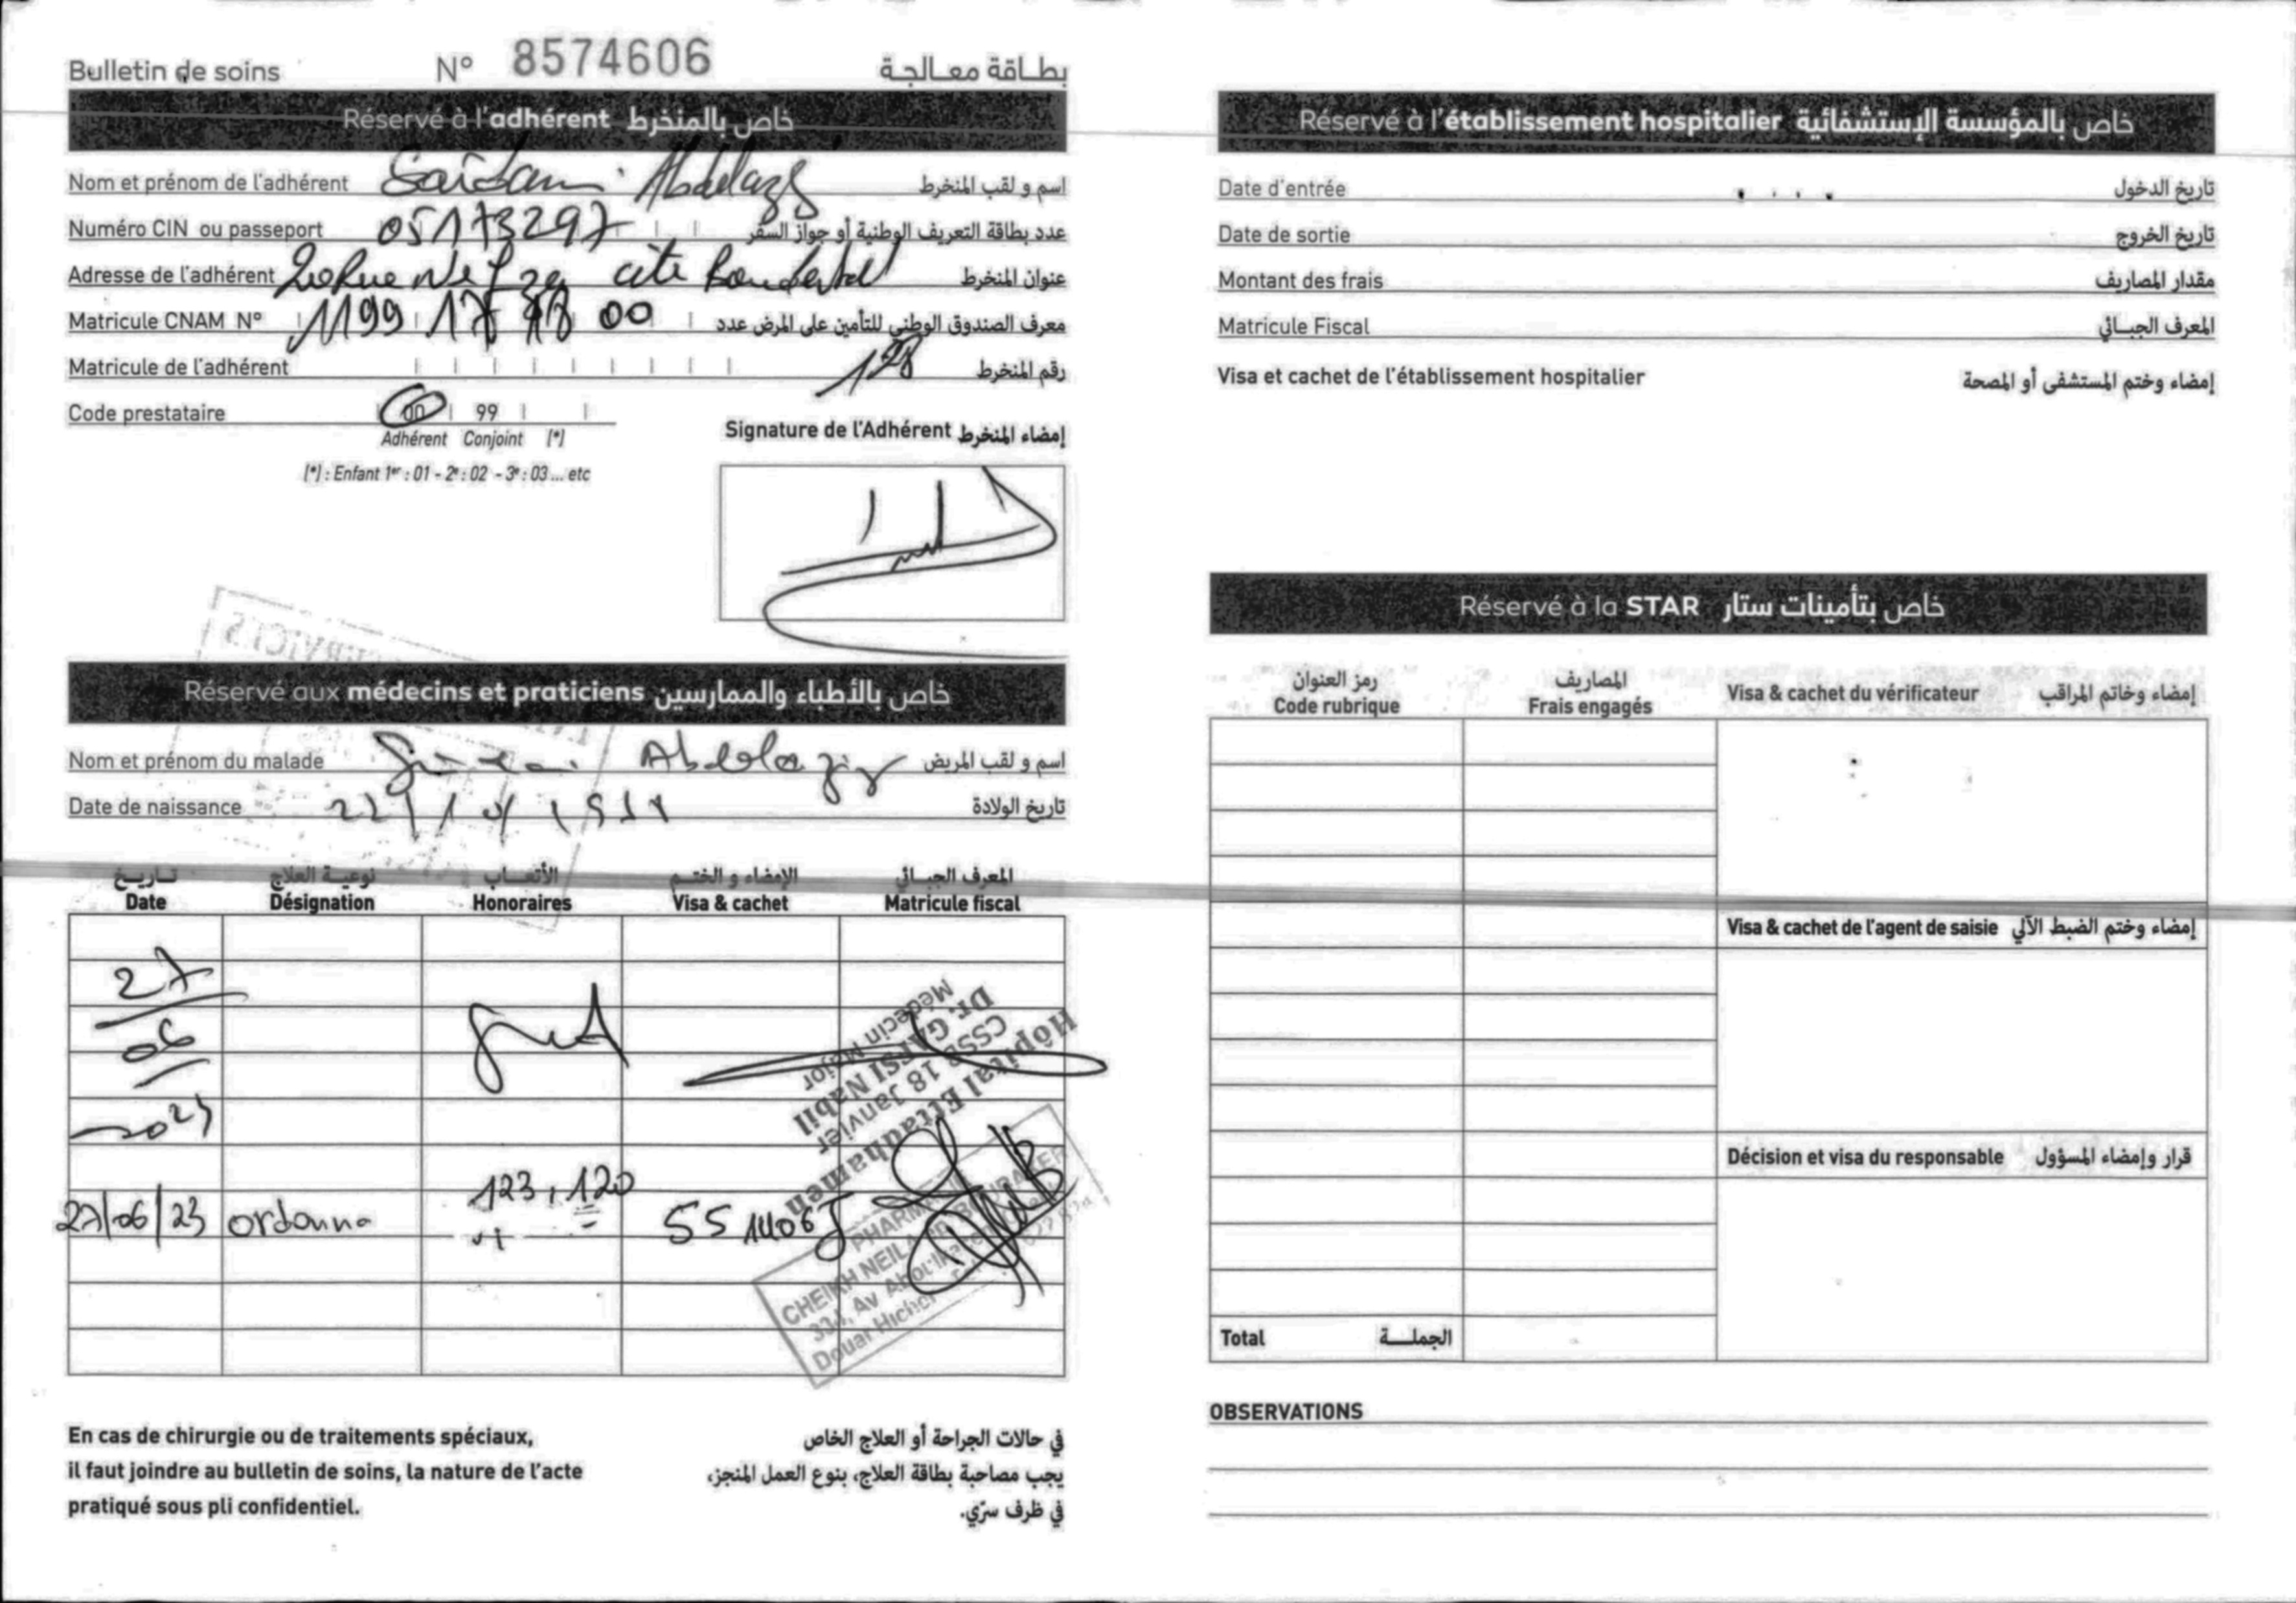 Bulletin de soins N° 8574606 بطاقة معالجة
Réservé à l'adhérent خاص بالمنخرط
Nom et prénom de l'adhérent Saïdani Abdelaziz اسم و لقب المنخرط
Numéro CIN ou passeport 05173297 عدد بطاقة التعريف الوطنية أو جواز السفر
Adresse de l'adhérent Rue cité عنوان المنخرط
Matricule CNAM N° 1199 17 00 معرف الصندوق الوطني للتأمين على المرض عدد
Matricule de l'adhérent 128 رقم المنخرط
Code prestataire 00 99
Adhérent Conjoint (*)
(*) : Enfant 1er : 01 - 2e : 02 - 3e : 03 ... etc
Signature de l'Adhérent إمضاء المنخرط
Réservé aux médecins et praticiens خاص بالأطباء والممارسين
Nom et prénom du malade Abdelaziz اسم و لقب المريض
Date de naissance 22/10/ تاريخ الولادة
تاريخ نوعية العلاج الأتعاب الإمضاء و الختم المعرف الجبائي
Date Désignation Honoraires Visa & cachet Matricule fiscal
27
06
2023
Médecin Major
Dr. GAPSI Nabil
CSSB 18 Janvier
Hôpital Ettadhamen
27/06/23 ordonna 123,120 551406J
PHARMACIE
CHEIKH NEILA BOURAOUI
Av
Douar Hicher
En cas de chirurgie ou de traitements spéciaux,
il faut joindre au bulletin de soins, la nature de l'acte
pratiqué sous pli confidentiel.
في حالات الجراحة أو العلاج الخاص
يجب مصاحبة بطاقة العلاج، بنوع العمل المنجز،
في ظرف سرّي.
Réservé à l'établissement hospitalier خاص بالمؤسسة الإستشفائية
Date d'entrée تاريخ الدخول
Date de sortie تاريخ الخروج
Montant des frais مقدار المصاريف
Matricule Fiscal المعرف الجبائي
Visa et cachet de l'établissement hospitalier إمضاء وختم المستشفى أو المصحة
Réservé à la STAR خاص بتأمينات ستار
رمز العنوان المصاريف
Code rubrique Frais engagés Visa & cachet du vérificateur إمضاء وخاتم المراقب
Visa & cachet de l'agent de saisie إمضاء وختم الضبط الآلي
Décision et visa du responsable قرار وإمضاء المسؤول
Total الجملة
OBSERVATIONS